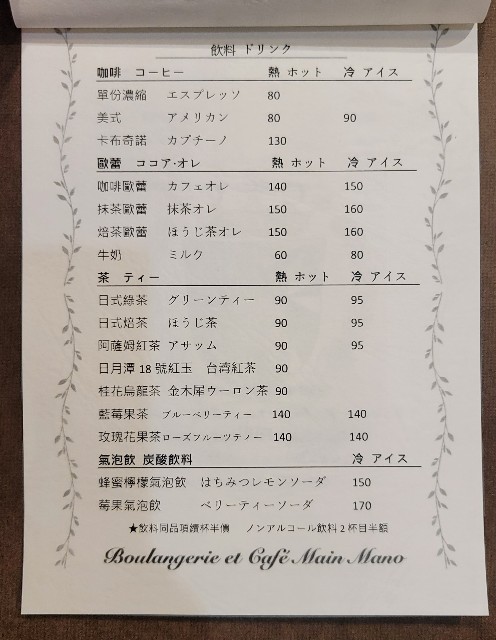 飲料 ドリンク
咖啡 コーヒー 熱 ホット 冷 アイス
單份濃縮 エスプレッソ 80
美式 アメリカン 80 90
卡布奇諾 カプチーノ 130
歐蕾 ココア·オレ 熱 ホット 冷 アイス
咖啡歐蕾 カフェオレ 140 150
抹茶歐蕾 抹茶オレ 150 160
焙茶歐蕾 ほうじ茶オレ 150 160
牛奶 ミルク 60 80
茶 ティー 熱 ホット 冷 アイス
日式綠茶 グリーンティー 90 95
日式焙茶 ほうじ茶 90 95
阿薩姆紅茶 アサッム 90 95
日月潭 18 號紅玉 台湾紅茶 90
桂花烏龍茶 金木犀ウーロン茶 90
藍莓果茶 ブルーベリーティー 140 140
玫瑰花果茶 ローズフルーツティー 140 140
氣泡飲 炭酸飲料 冷 アイス
蜂蜜檸檬氣泡飲 はちみつレモンソーダ 150
莓果氣泡飲 ベリーティーソーダ 170
★飲料同品項續杯半價 ノンアルコール飲料2杯目半額
Boulangerie et Café Main Mano